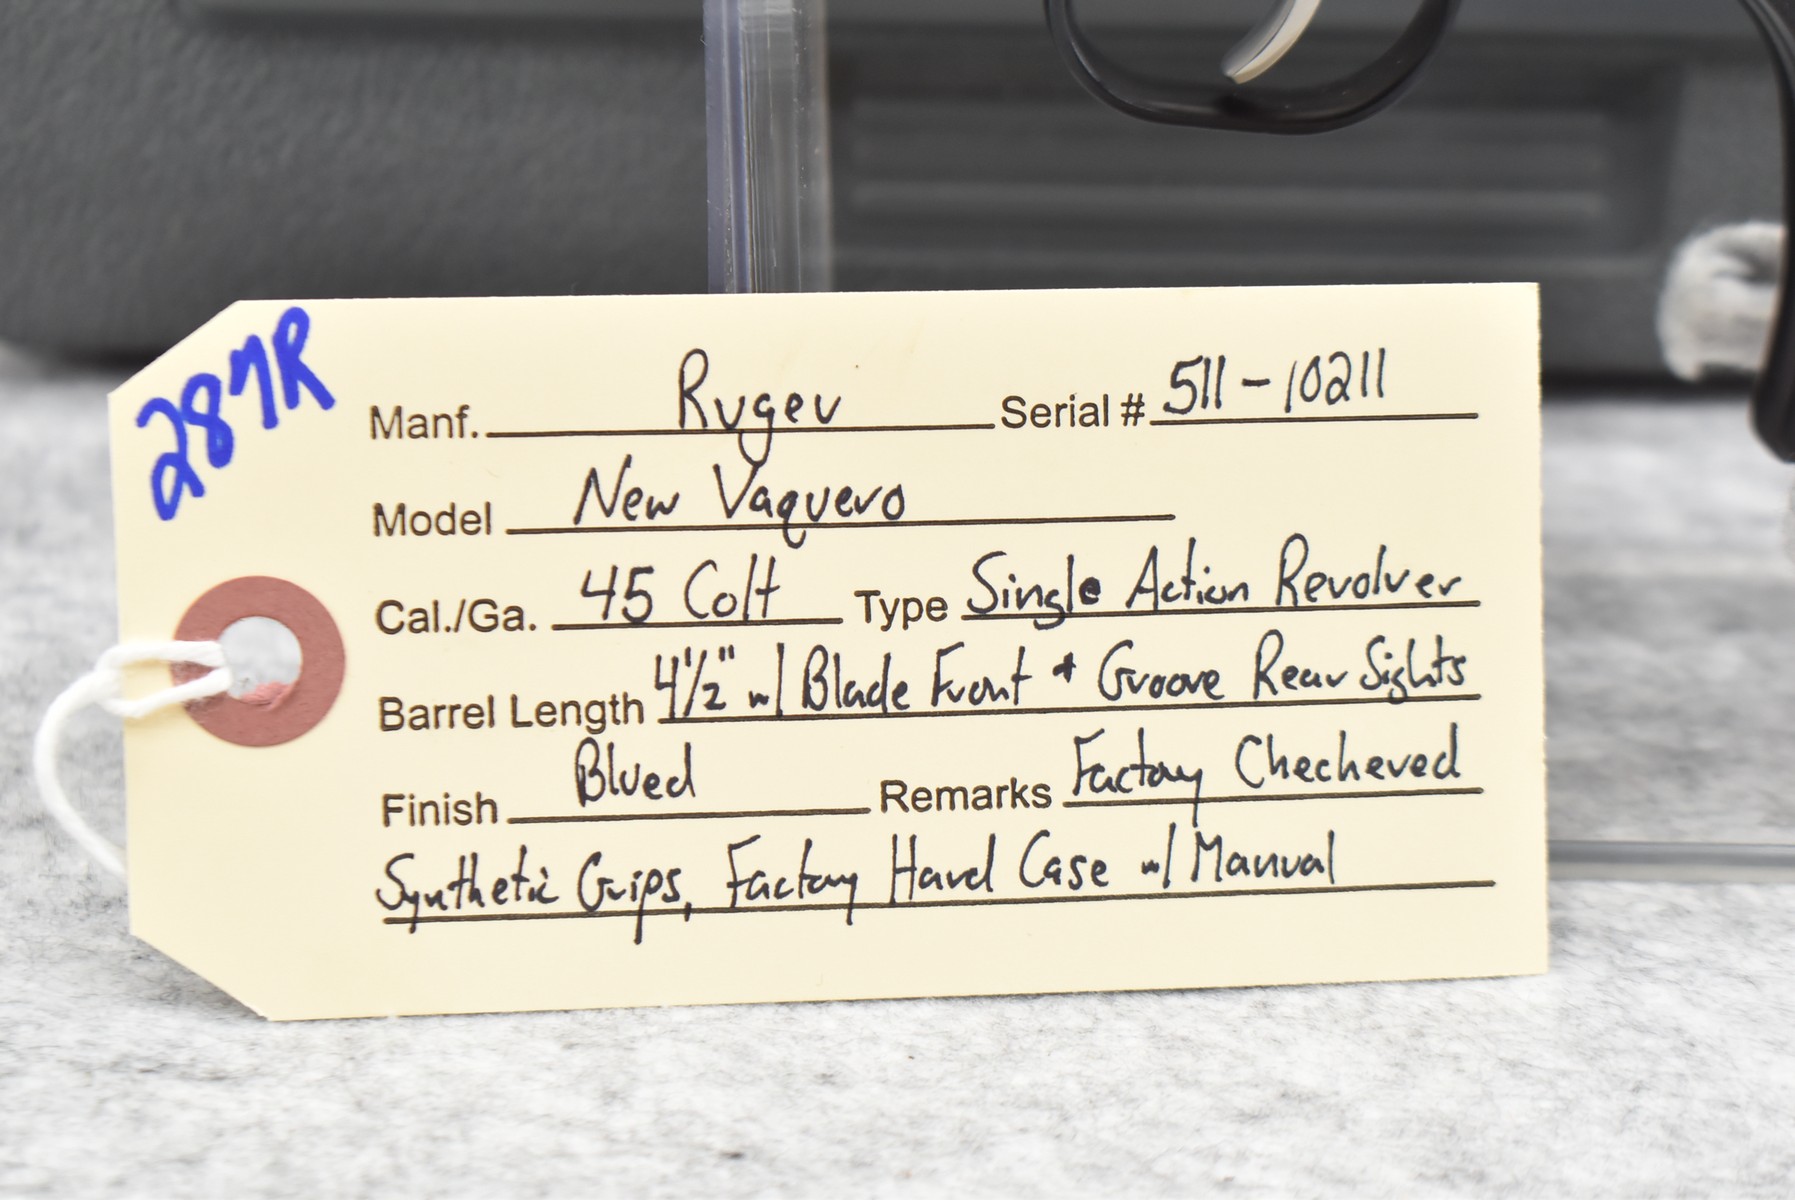 287R
Manf. Ruger Serial # 511-10211
Model New Vaquero
Cal./Ga. 45 Colt Type Single Action Revolver
Barrel Length 4½" w/ Blade Front + Groove Rear Sights
Finish Blued Remarks Factory Checkered
Synthetic Grips, Factory Hard Case w/ Manual